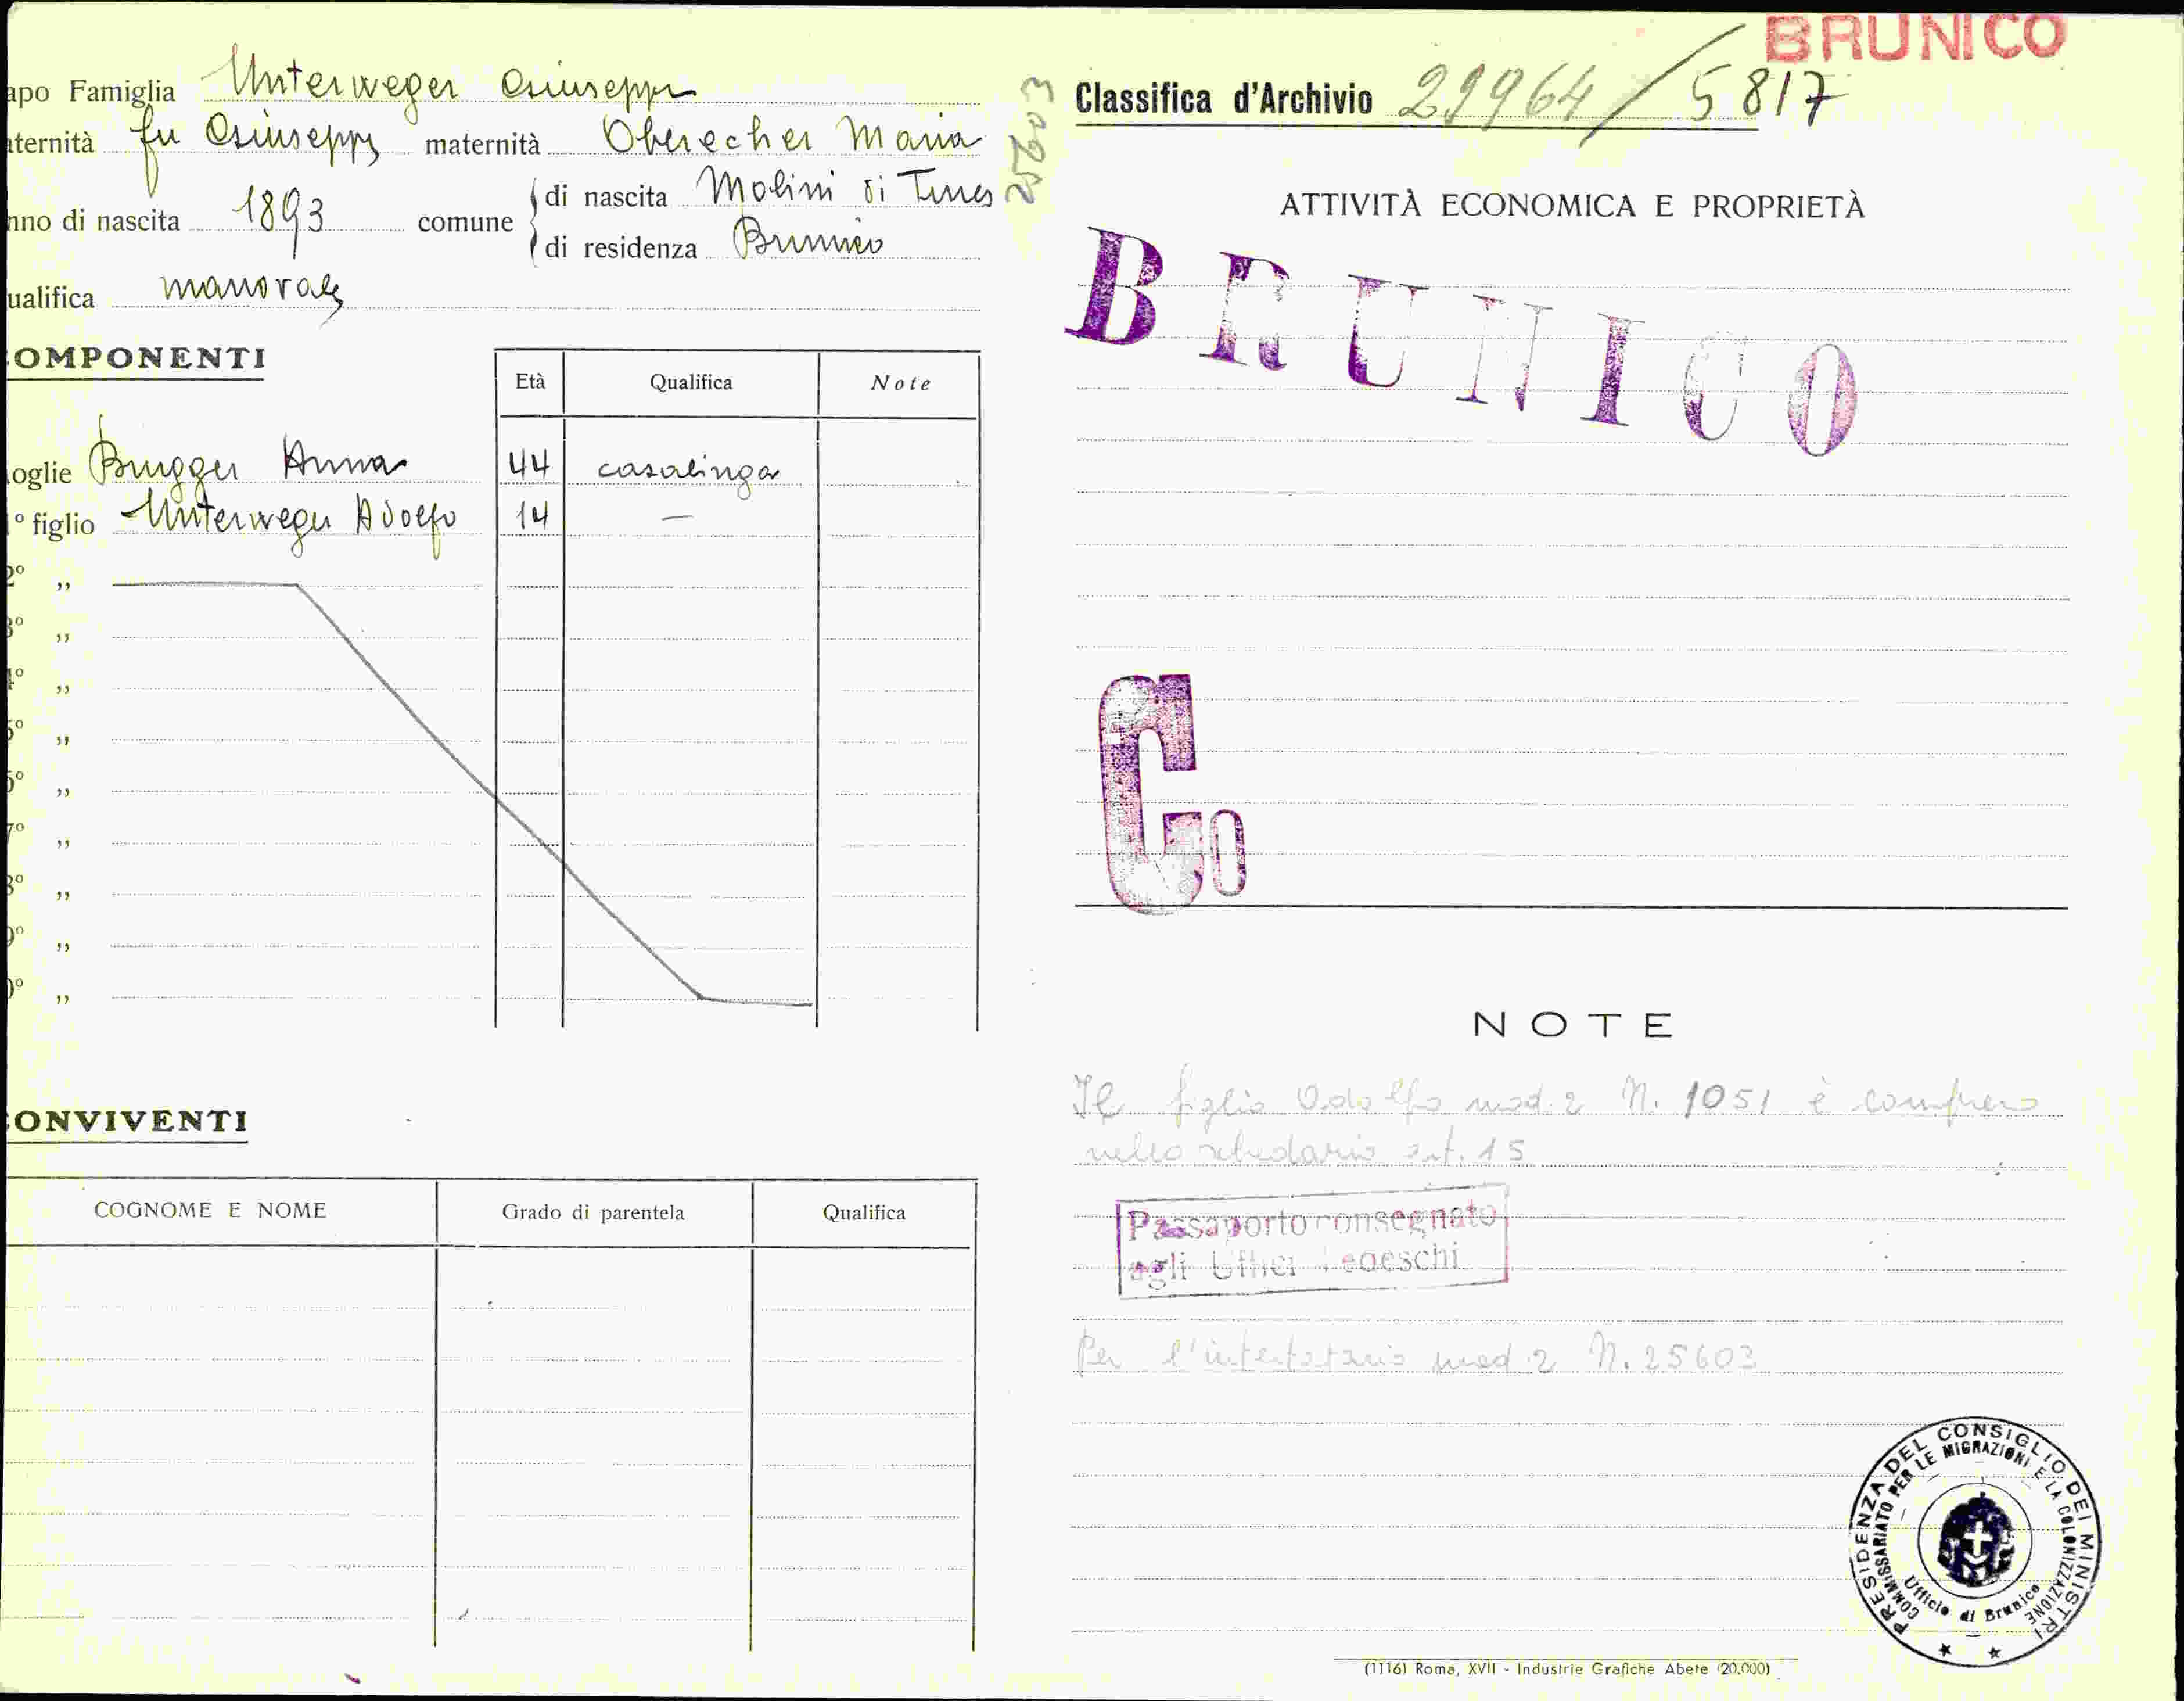 apo Famiglia Unterweger Giuseppe
aternità fu Giuseppe maternità Oberecher Maria
nno di nascita 1893 comune
di nascita Molini di Tures
di residenza Brunico
ualifica manovale
25603
OMPONENTI
Età Qualifica Note
oglie Brugger Anna 44 casalinga
° figlio Unterweger Adolfo 14 —
2º „
3º „
4º „
5º „
6º „
7º „
8º „
9º „
0º „
ONVIVENTI
COGNOME E NOME Grado di parentela Qualifica
BRUNICO
Classifica d'Archivio 29964/5817
ATTIVITÀ ECONOMICA E PROPRIETÀ
BRUNICO
Co
NOTE
Il figlio Adolfo mod. 2 N. 1051 è compreso
nello schedario art. 15
Passaporto consegnato
agli Uffici Tedeschi
Per l'intestatario mod. 2 N. 25603
PRESIDENZA DEL CONSIGLIO DEI MINISTRI
COMMISSARIATO PER LE MIGRAZIONI E LA COLONIZZAZIONE
Ufficio di Brunico
(1116) Roma, XVII - Industrie Grafiche Abete (20.000)